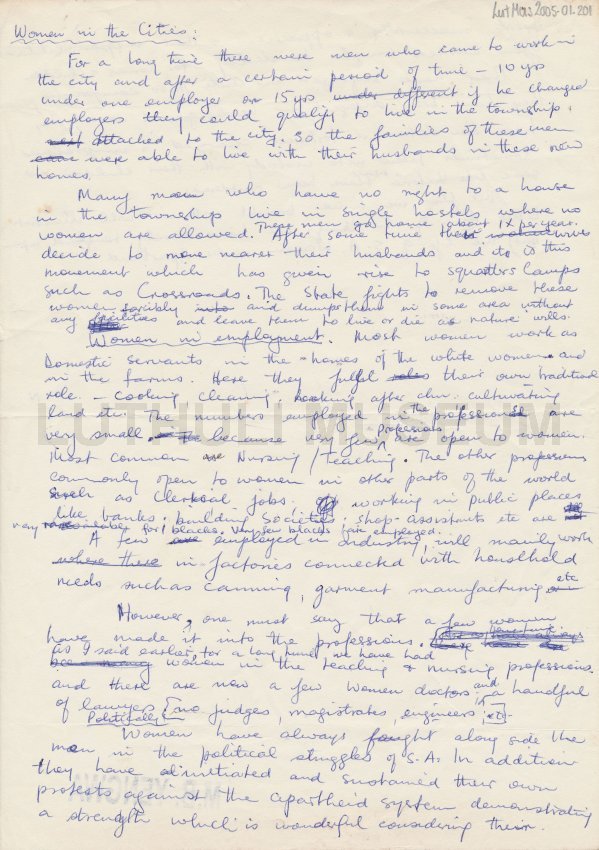 Lut Mus 2005-01.201
Women in the Cities:
For a long time there were men who came to work in
the city and after a certain period of time – 10 yrs
under one employer or 15 yrs under different if he changed
employers they could qualify to live in the township
attached to the city. So the families of these men
were able to live with their husbands in these new
homes.
Many men who have no right to a house
in the township live in single hostels where no
women are allowed. These men go home about 1x per year.
After some time their wives
decide to move nearer their husbands and its is this
movement which has given rise to squatters camps
such as Crossroads. The State fights to remove these
women forcibly and dumps them in some area without
any facilities and leave them to live or die as nature wills.
Women in employment. Most women work as
Domestic servants in the homes of the white women and
in the farms. Here they fulfil their own traditional
role. – Cooking cleaning, looking after chn. cultivating
land etc. The numbers employed in the professions are
very small because very few professions are open to women.
Most common are Nursing/teaching. The other professions
commonly open to women in other parts of the world
such as Clerical jobs. working in public places
like banks, building societies, shop-assistants etc are
very for blacks. Very few blacks are employed.
A few employed in industry, will mainly work
where there in factories connected with household
needs such as canning, garment manufacturing etc
However, one must say that a few women
have made it into the professions.
as I said earlier, for a long time we have had
women in the teaching & nursing professions.
and there are now a few women doctors and a handful
of lawyers [no judges, magistrates, engineers, etc]
Politically
Women have always fought along side the
men in the political struggles of S.A. In addition
they have initiated and sustained their own
protests against the apartheid system demonstrating
a strength which is wonderful considering their
LUTHULI MUSEUM
M.B. YENGWA